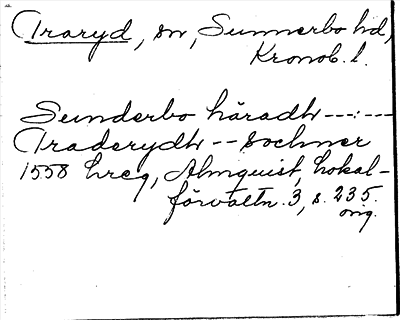 Traryd, sn, Sunnerbo hd,
Kronob. l.
Sunderbo häradh---:---
Traderydh--sochner
1558 hreg, Almquist, Lokal-
förvaltn. 3, s. 235.
orig.